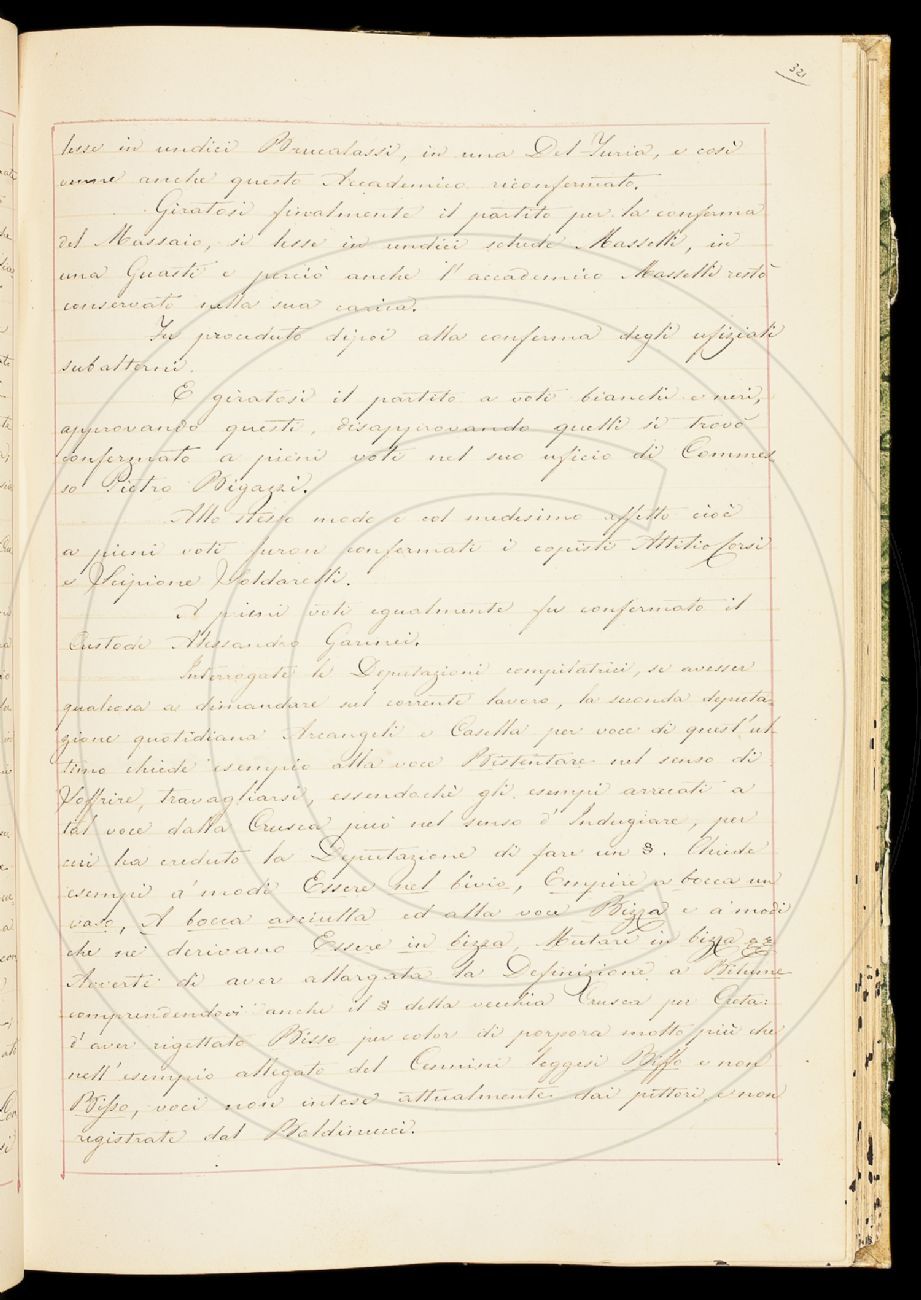 321
lesse in undici Brucalassi, in una Del Furia, e così
venne anche questo Accademico riconfermato.
Giratosi finalmente il partito per la conferma
del Massaio, si lesse in undici schede Masselli, in
una Guasti e perciò anche l'accademico Masselli restò
conservato nella sua carica.
Fu proceduto dipoi alla conferma degli ufiziali
subalterni.
E giratosi il partito a voti bianchi e neri,
approvando questi, disapprovando quelli si trovò
confermato a pieni voti nel suo uficio di Commes
so Pietro Bigazzi.
Allo stesso modo e col medesimo effetto cioè
a pieni voti furon confermati i copisti Attilio Corsi
e Scipione Soldarelli.
A pieni voti egualmente fu confermato il
Custode Alessandro Garinei.
Interrogate le Deputazioni compilatrici, se avesser
qualcosa a dimandare sul corrente lavoro, la seconda deputa=
zione quotidiana Arcangeli e Casella per voce di quest'ul=
timo chiede esempio alla voce Bistentare nel senso di
Soffrire, travagliarsi, essendochè gli esempi arrecati a
tal voce dalla Crusca può nel senso d'Indugiare, per
cui ha creduto la Deputazione di fare un §. Chiede
esempi a' modi Essere nel bivio, Empire a bocca un
vaso, A bocca asciutta ed alla voce Bizza e a' modi
che ne derivano Essere in bizza, Mutare in bizza
Avverte di aver allargata la Definizione a Bitume
comprendendovi anche il § della vecchia Crusca per Creta:
d'aver rigettato Bisso per color di porpora molto più che
nell'esempio allegato del Cennini leggesi Biffo e non
Bisso, voci non intese attualmente dai pittori, e non
registrate dal Baldinucci.